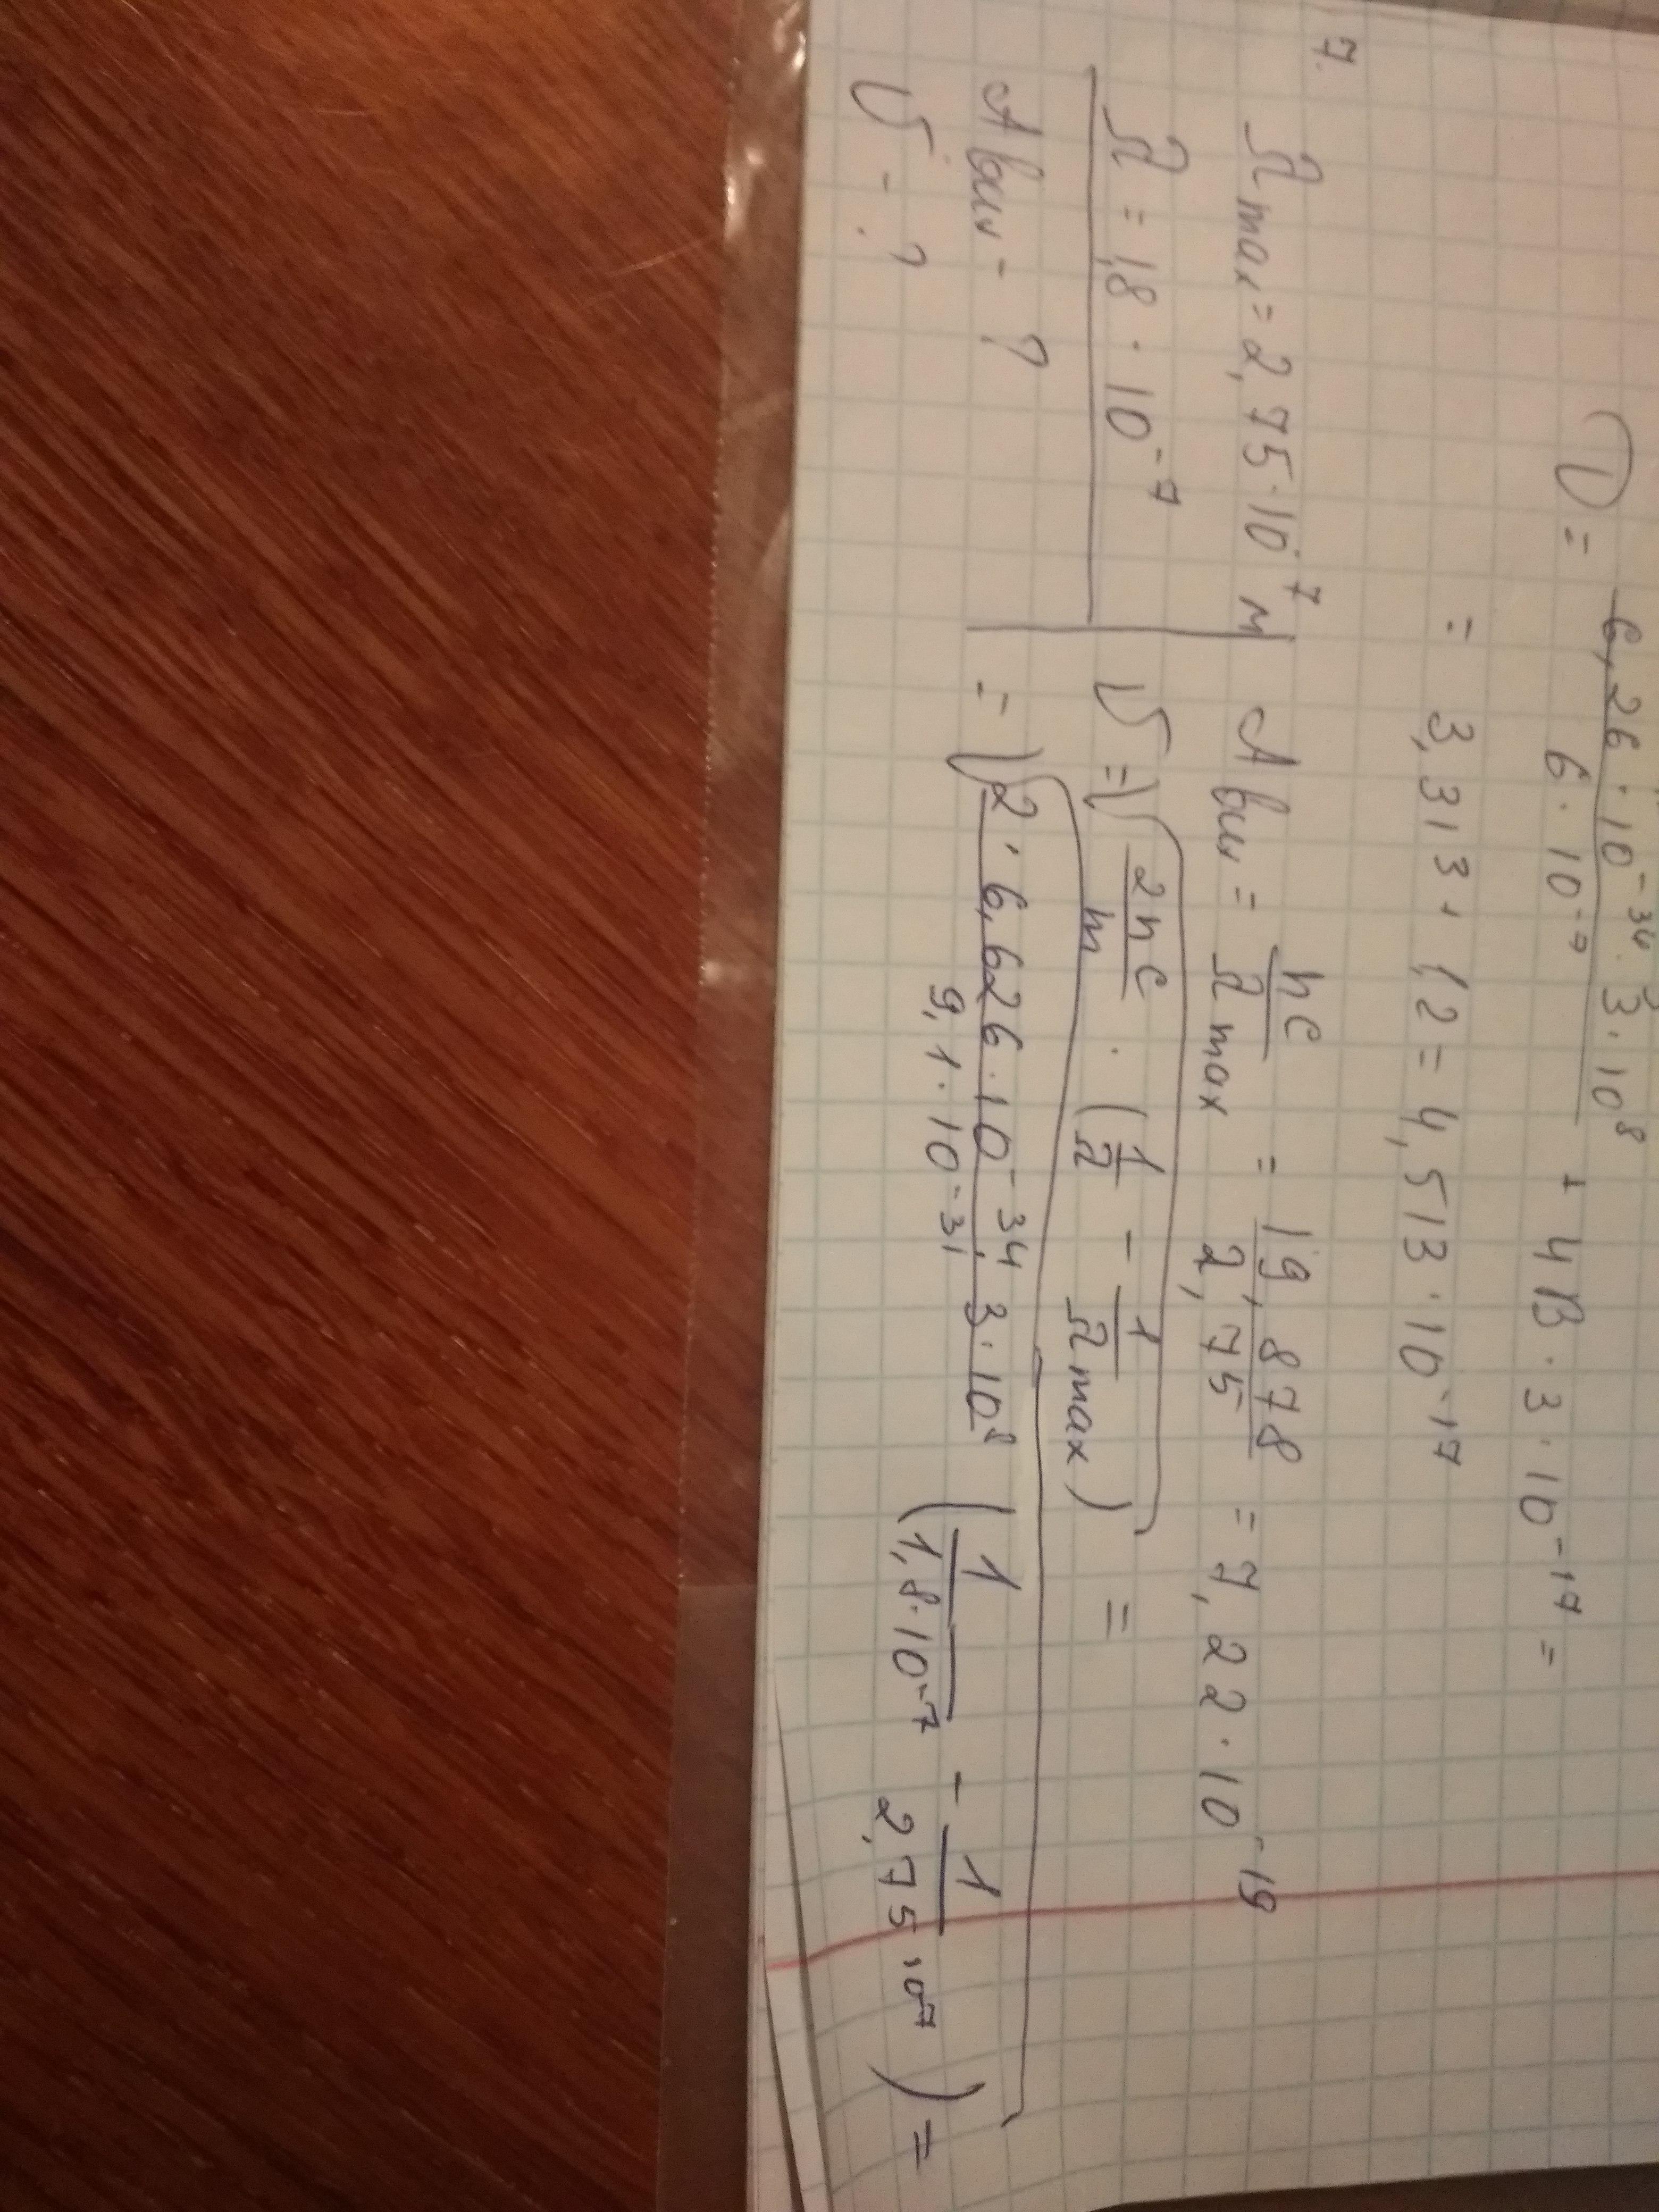 ① = 6,26 · 10⁻³⁴ · 3 · 10⁸ / 6 · 10⁻⁷ + 4B · 3 · 10⁻¹⁷ =
= 3,313 + 1,2 = 4,513 · 10⁻¹⁷
7.
λ max = 2,75 · 10⁷ м
λ = 1,8 · 10⁻⁷
A вих - ?
V - ?
A вих = hc / λ max = 19,878 / 2,75 = 7,22 · 10⁻¹⁹
V = √(2hc / m · (1/λ - 1/λ max)) =
= √(2 · 6,626 · 10⁻³⁴ · 3 · 10⁸ / 9,1 · 10⁻³¹ (1 / 1,8 · 10⁻⁷ - 1 / 2,75 · 10⁻⁷)) =